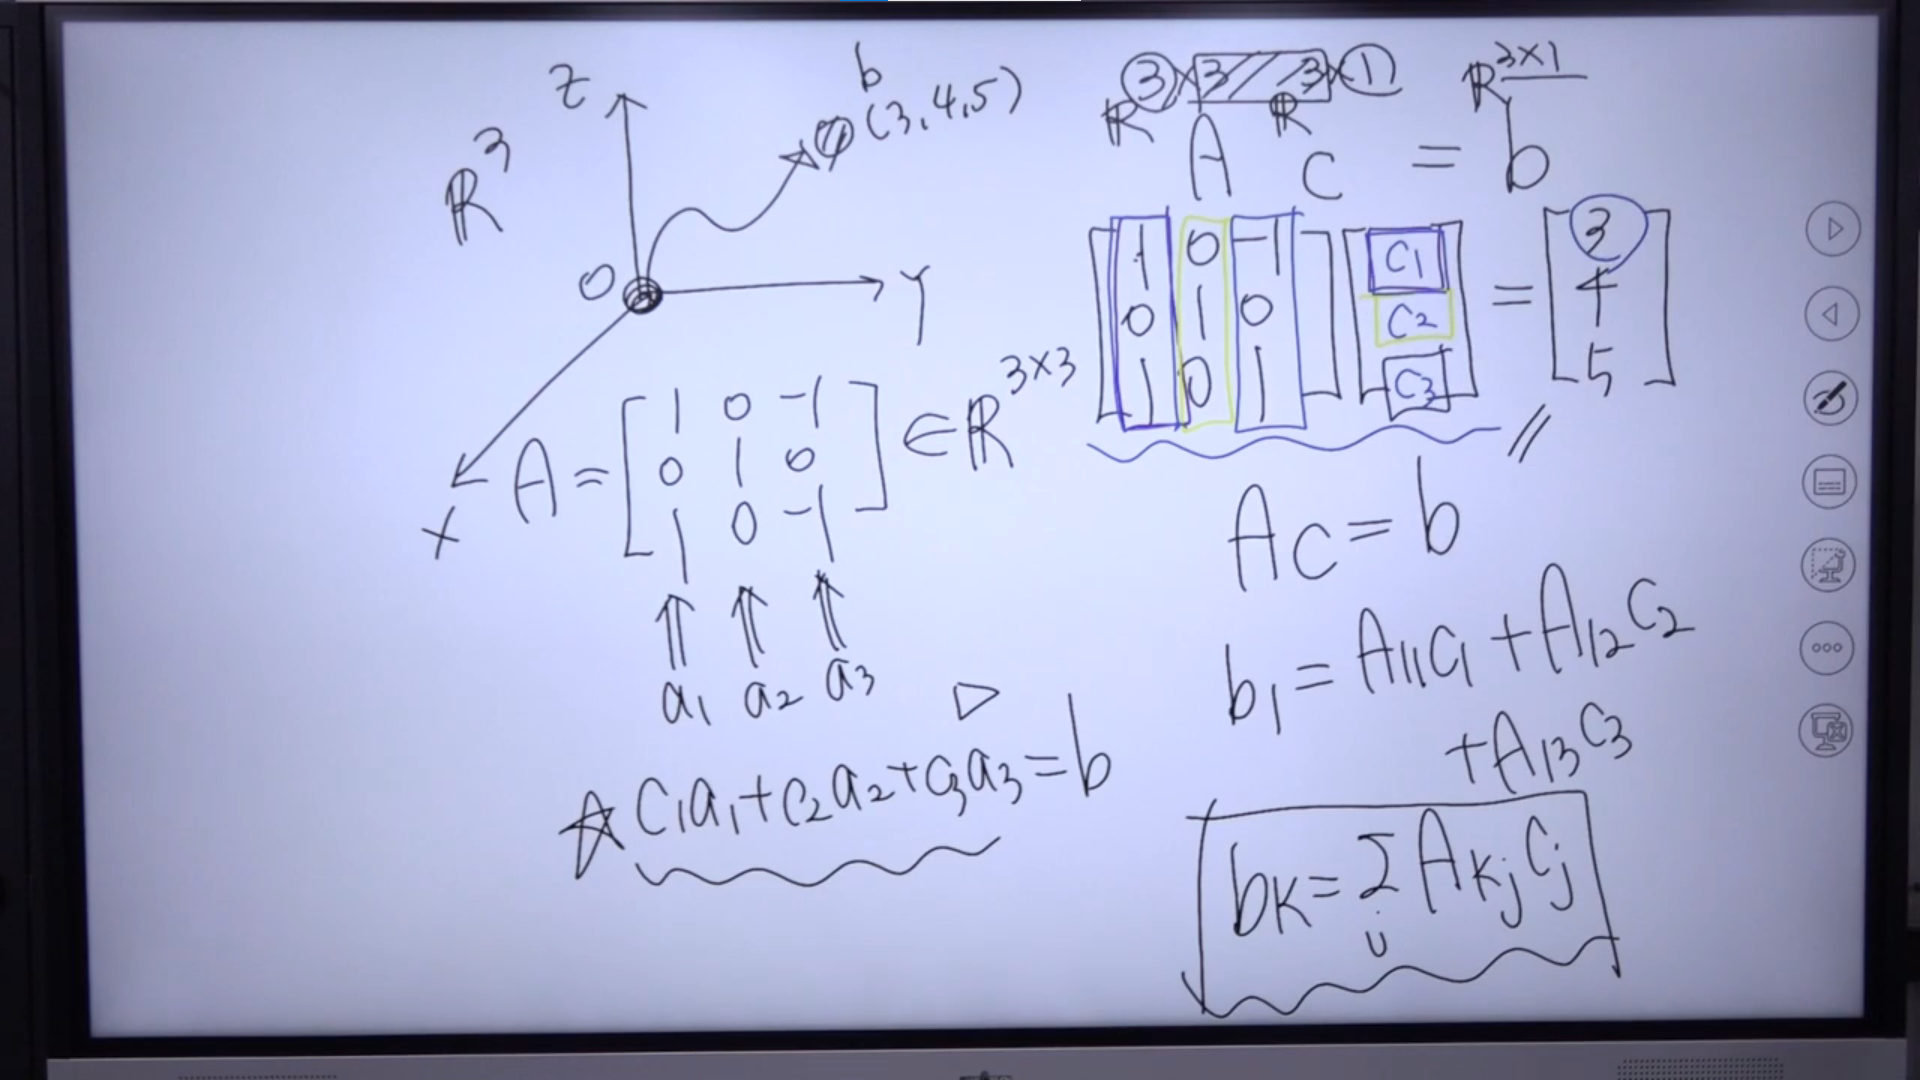 Z
b
(3,4,5)
ℝ³
O
Y
X
A = [ 1 0 -1
0 1 0
1 0 -1 ] ∈ ℝ^{3×3}
a₁ a₂ a₃
☆ c₁a₁+c₂a₂+c₃a₃=b
ℝ^{3×3} ℝ^{3×1} ℝ^{3×1}
A c = b
[ 1 0 -1 ] [ c₁ ] [ 3 ]
[ 0 1 0 ] [ c₂ ] = [ 4 ]
[ 1 0 1 ] [ c₃ ] [ 5 ]
Ac=b
b₁=A₁₁c₁+A₁₂c₂
+A₁₃c₃
b_k=Σ_j A_kj c_j